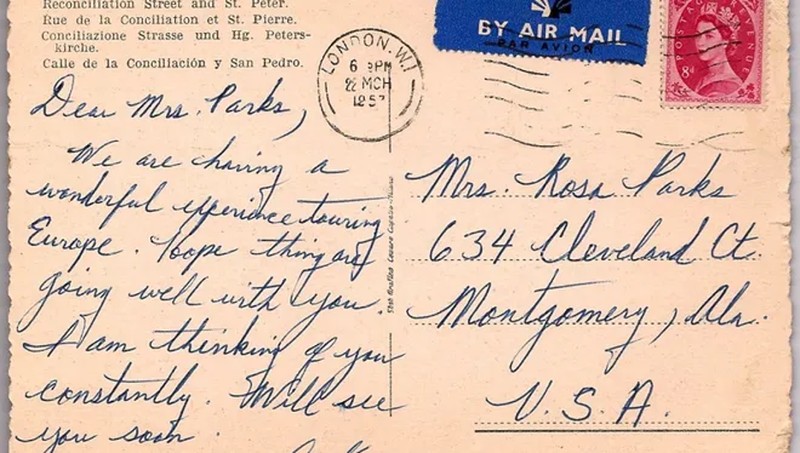 Reconciliation Street and St. Peter.
Rue de la Conciliation et St. Pierre.
Conciliazione Strasse und Hg. Peters-
kirche.
Calle de la Conciliación y San Pedro.
BY AIR MAIL
PAR AVION
POSTAGE REVENUE
8d
LONDON. W.1
6 PM
22 MCH
1957
Dear Mrs. Parks,
We are having a
wonderful experience touring
Europe. Hope things are
going well with you.
I am thinking of you
constantly. Will see
you soon.
Mrs. Rosa Parks
634 Cleveland Ct.
Montgomery, Ala.
U. S. A.